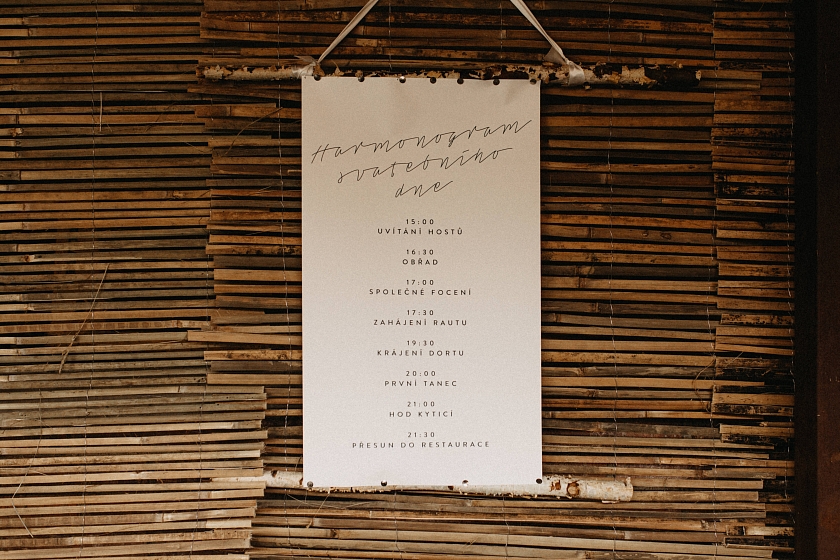 Harmonogram
svatebního
dne
15:00
UVÍTÁNÍ HOSTŮ
16:30
OBŘAD
17:00
SPOLEČNÉ FOCENÍ
17:30
ZAHÁJENÍ RAUTU
19:30
KRÁJENÍ DORTU
20:00
PRVNÍ TANEC
21:00
HOD KYTICÍ
21:30
PŘESUN DO RESTAURACE